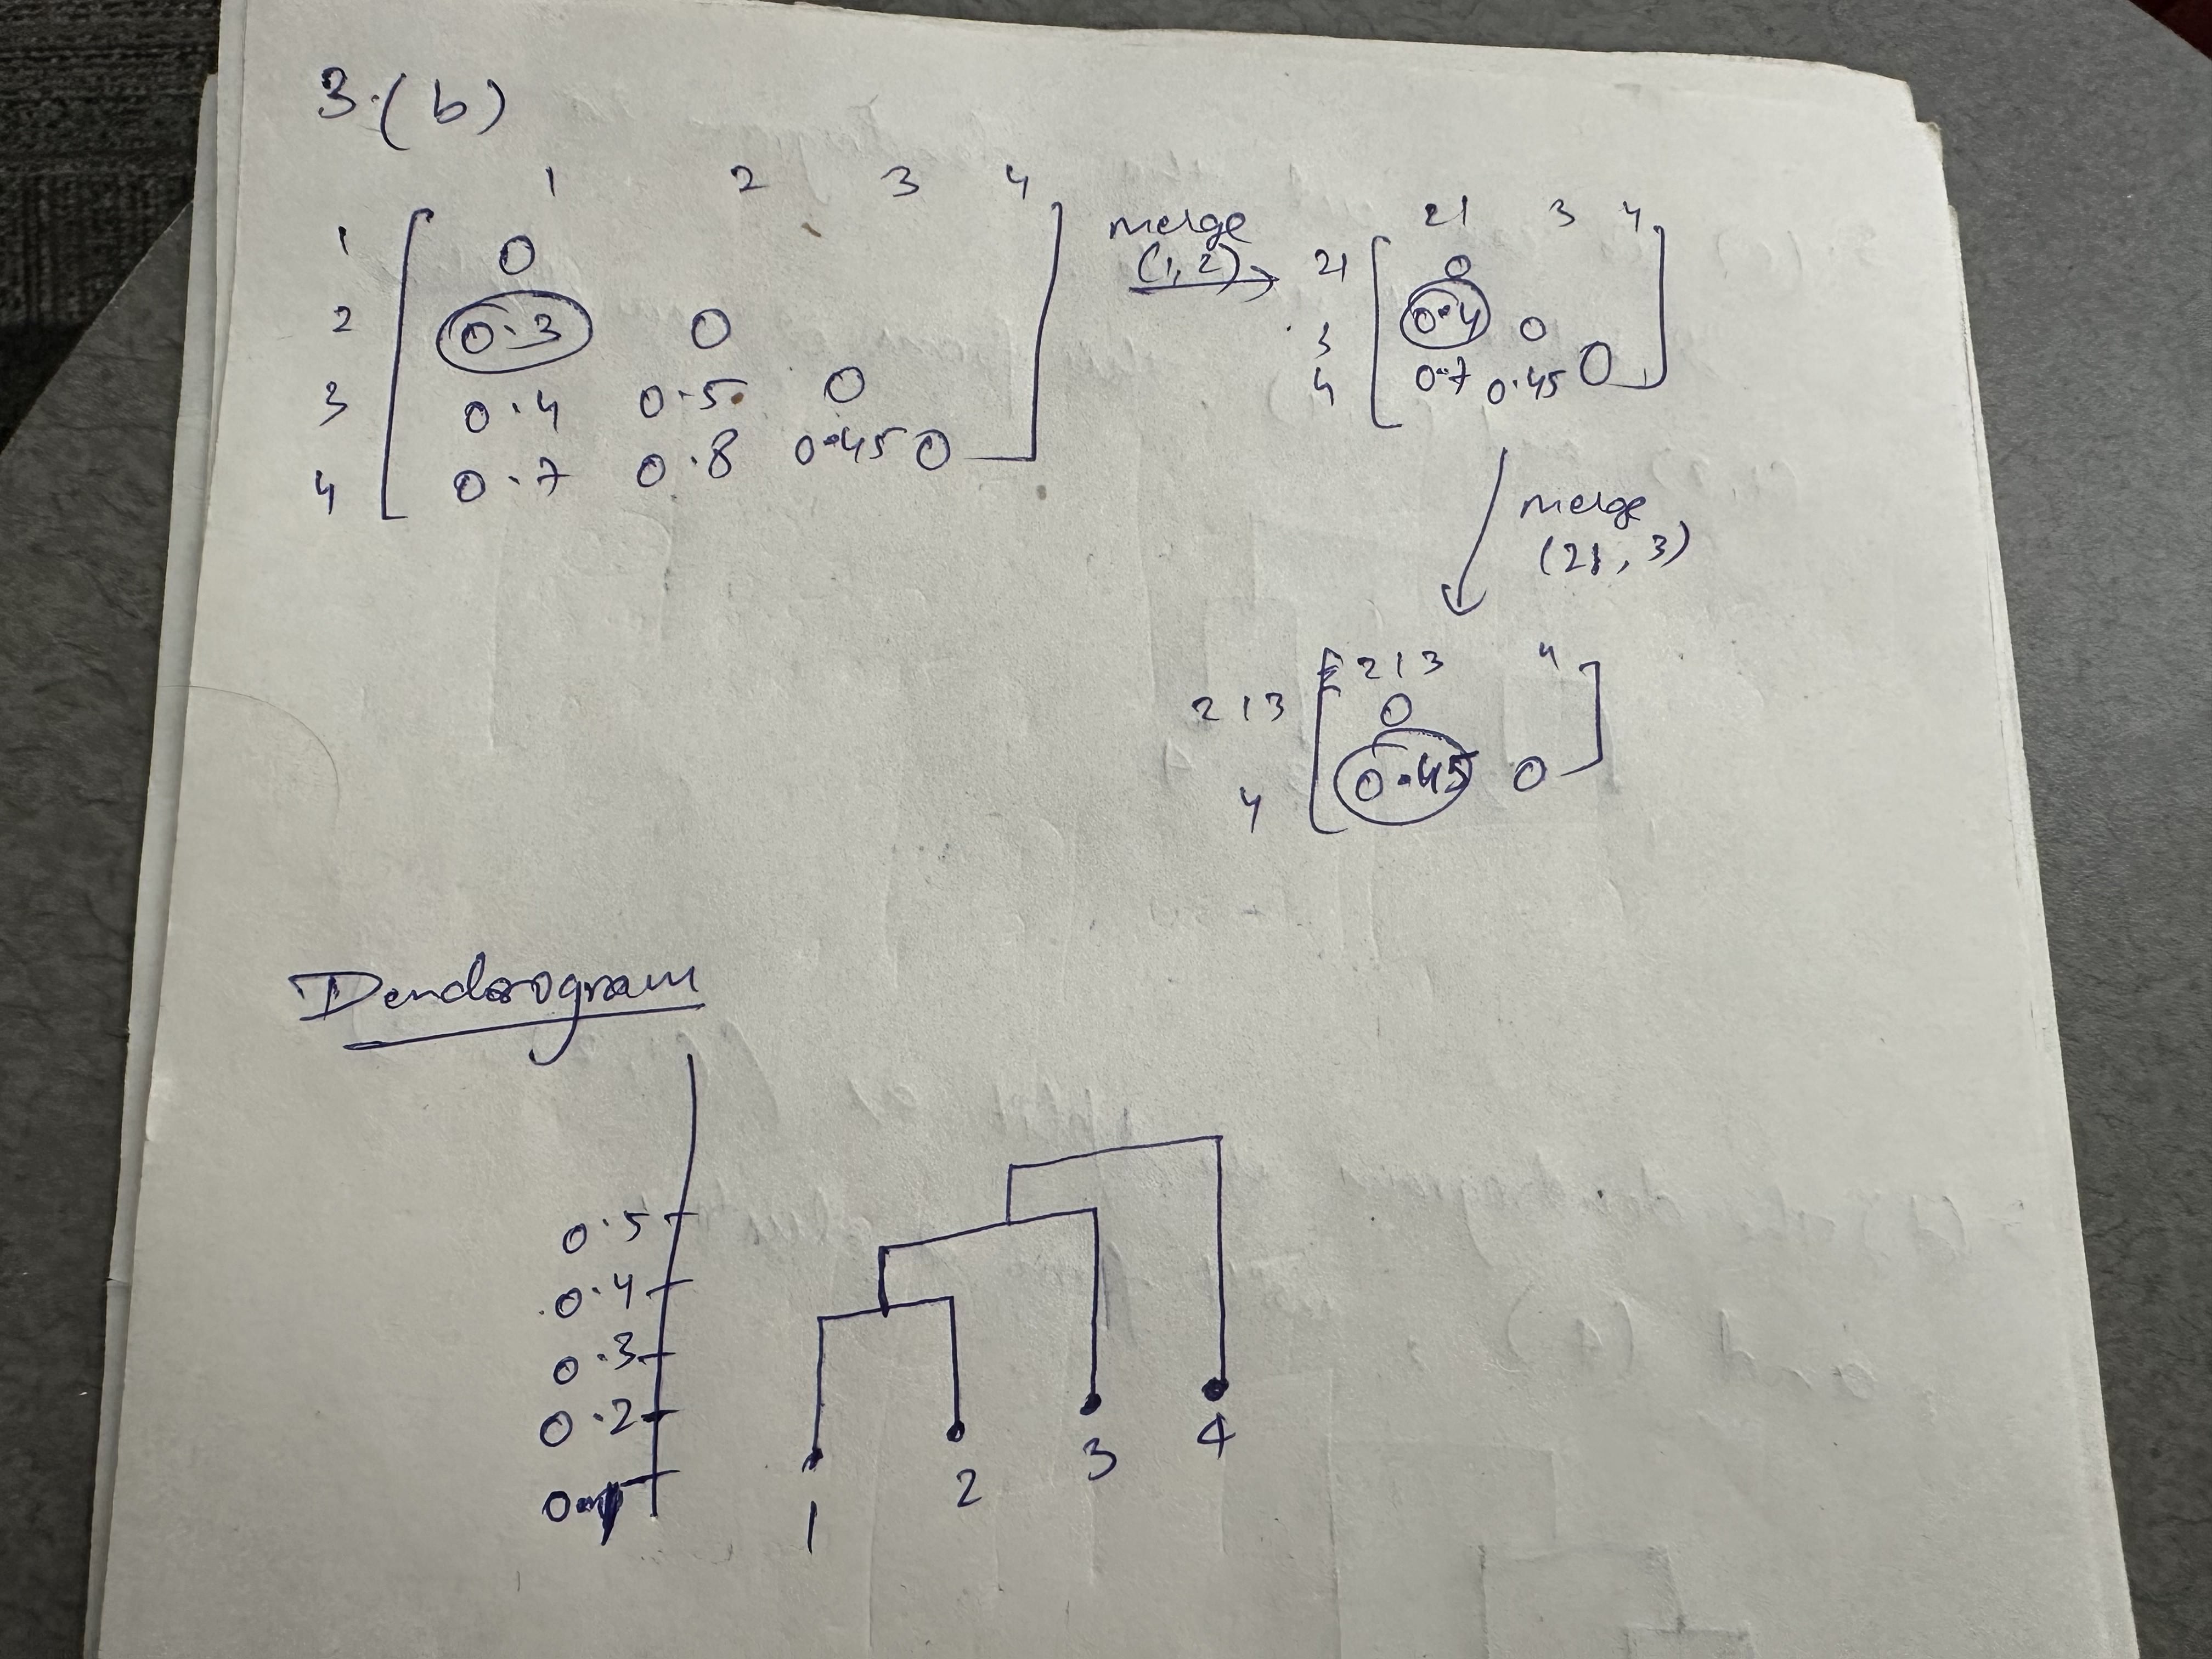 3.(b)
1 2 3 4
1 0
2 0.3 0
3 0.4 0.5 0
4 0.7 0.8 0.45 0
merge
(1,2)
21 3 4
21 0
3 0.4 0
4 0.7 0.45 0
merge
(21, 3)
213 4
213 0
4 0.45 0
Dendrogram
0.5
0.4
0.3
0.2
0.1
1 2 3 4